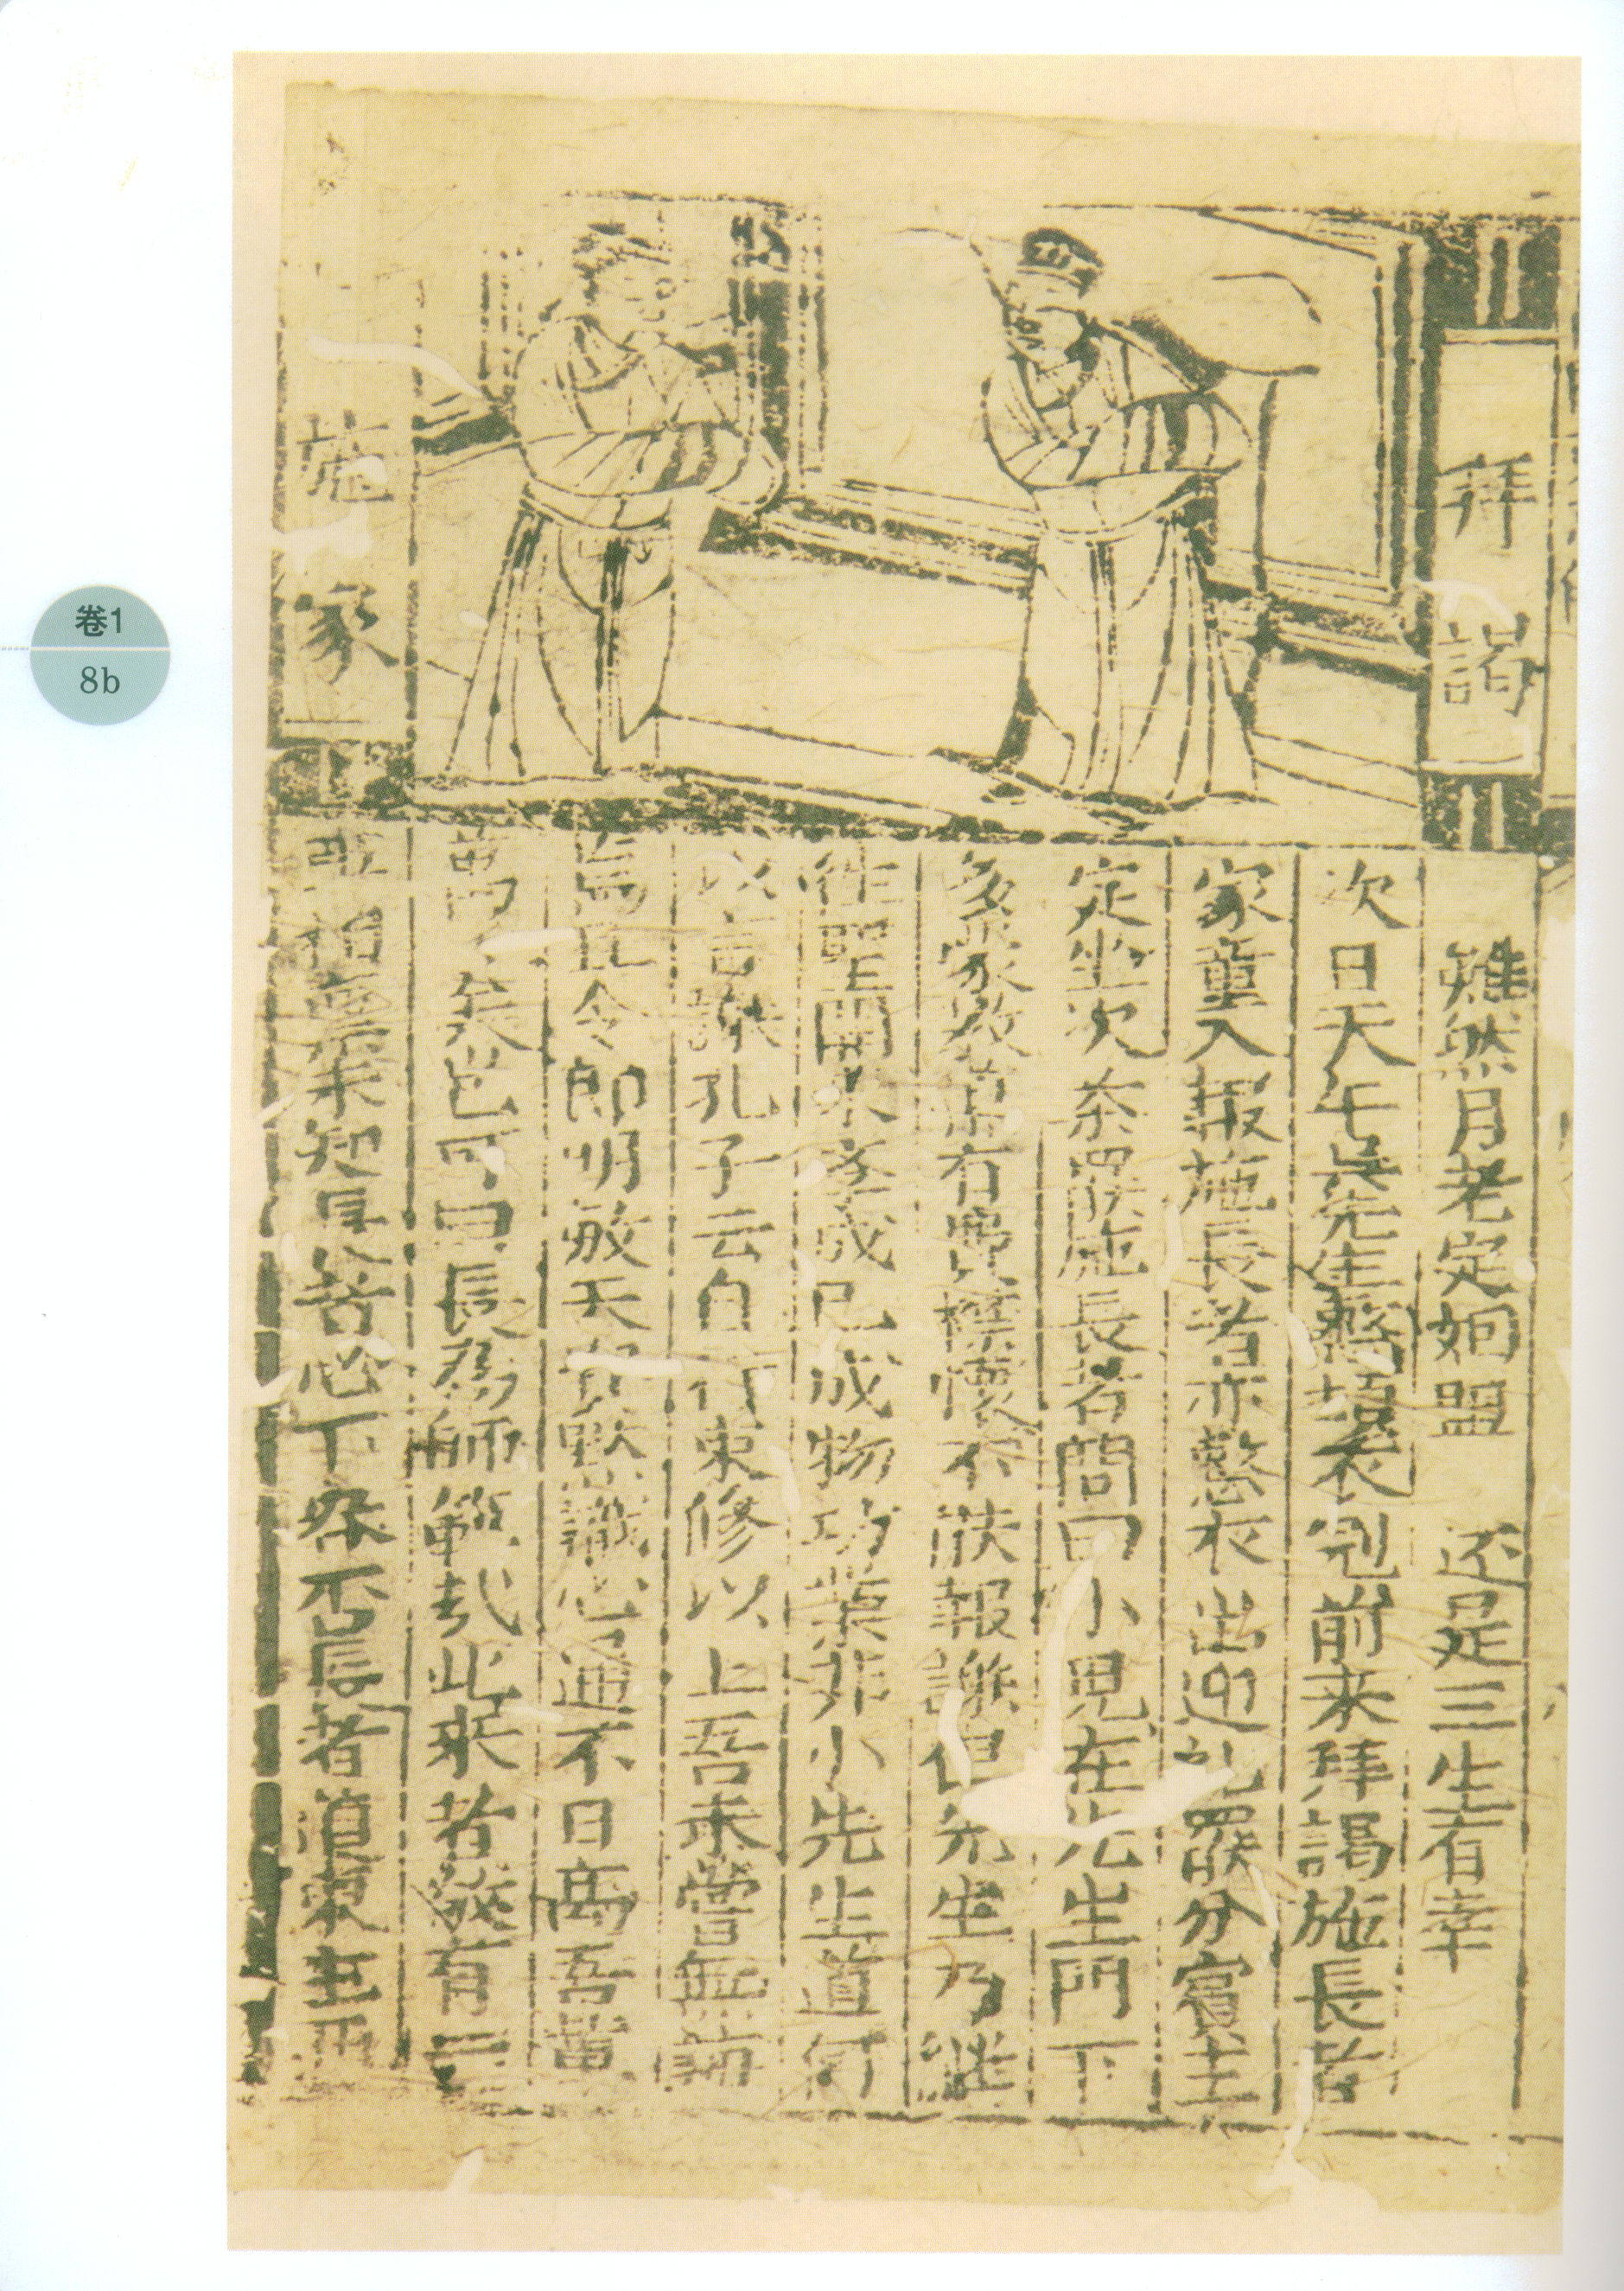 卷1
8b
拜謁
施家
雖然月老定姻盟 还是三生有幸
次日天午吳先生整撎衣冠前来拜謁施長者
家童入報施長者亦整衣出迎礼畢分賓主
定坐次茶罷施長者問曰小児在先生門下
多蒙教誨有費襟懷不能報謝但先生乃謙
往聖開來學成己成物功業非小先生道何
以言謙孔子云自行束修以上吾未嘗無誨
焉且令郎明敏天資默識心通不日高吾輩
萬矣豈可曰長為師範哉此來者欲有一
言相稟未知尊意心下容否長者道東主西